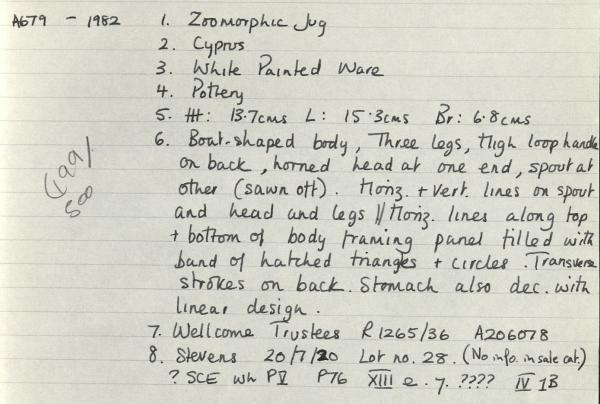 A679 - 1982
1. Zoomorphic Jug
2. Cyprus
3. White Painted Ware
4. Pottery
5. Ht: 13.7cms L: 15.3cms Br: 6.8cms
6. Boat-shaped body, Three legs, High loop handle
on back, horned head at one end, spout at
other (sawn off). Horiz. + vert. lines on spout
and head and legs // Horiz. lines along top
+ bottom of body framing panel filled with
band of hatched triangles + circles. Transverse
strokes on back. Stomach also dec. with
linear design.
7. Wellcome Trustees R1265/36 A206078
8. Stevens 20/7/20 Lot no. 28. (No info. in sale cat.)
? SCE Wh P V P76 XIII e. 7. ???? IV 1B
500